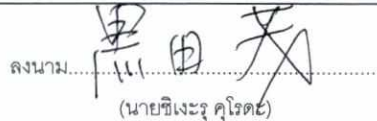 ลงนาม........黒田茂........
(นายชิเงะรุ คุโรดะ)